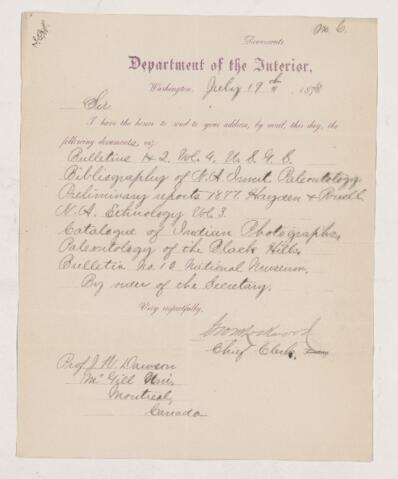 M. C.
Documents.
Department of the Interior,
Washington, July 19th 1878
Sir
I have the honor to send to your address, by mail, this day, the
following documents, viz:
Bulletins 1 & 2. Vol. 4. U.S.G.S.
Bibliography of N.A. Invert. Paleontology
Preliminary reports 1877. Hayden & Powell
N.A. Ethnology Vol. 3.
Catalogue of Indian Photographs,
Paleontology of the Black Hills.
Bulletin No. 10 National Museum.
By order of the Secretary.
Very respectfully,
Geo M Lockwood
Chief Clerk.
Prof J. W. Dawson
McGill Uni.
Montreal,
Canada